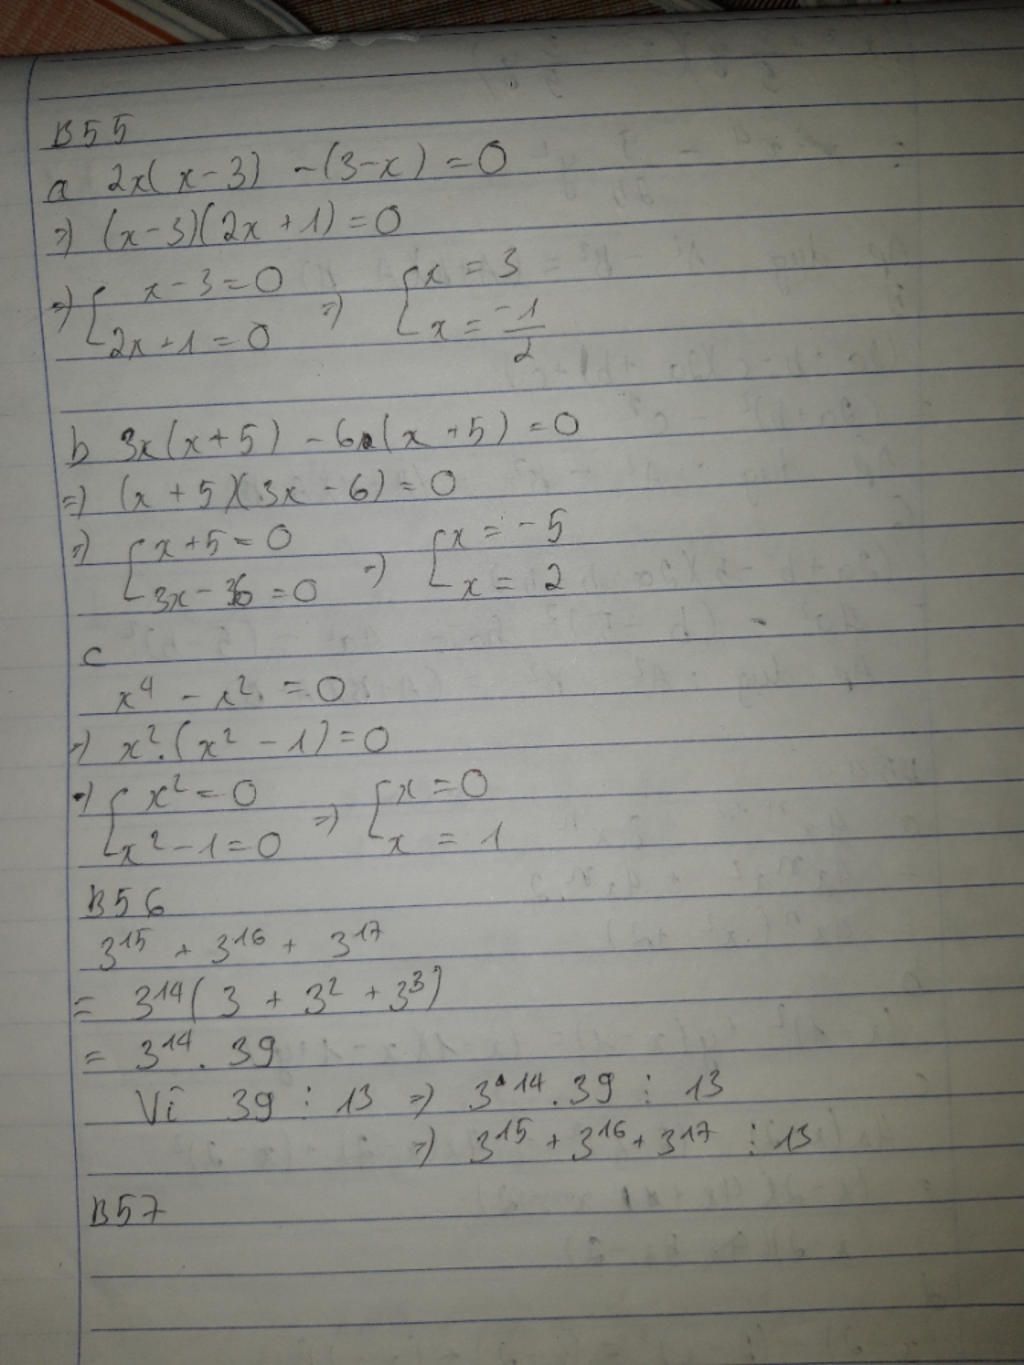 B55
a 2x(x-3) -(3-x) = 0
=> (x-3)(2x+1) = 0
=> { x-3=0 => { x = 3
2x+1=0 x = -1/2
b 3x(x+5) - 6(x+5) = 0
=> (x+5)(3x-6) = 0
=> { x+5=0 => { x = -5
3x-6=0 x = 2
c
x⁴ - x² = 0
=> x².(x²-1) = 0
=> { x²=0 => { x=0
x²-1=0 x = 1
B56
3¹⁵ + 3¹⁶ + 3¹⁷
= 3¹⁴(3 + 3² + 3³)
= 3¹⁴. 39
Vì 39 ⋮ 13 => 3¹⁴.39 ⋮ 13
=> 3¹⁵ + 3¹⁶ + 3¹⁷ ⋮ 13
B57